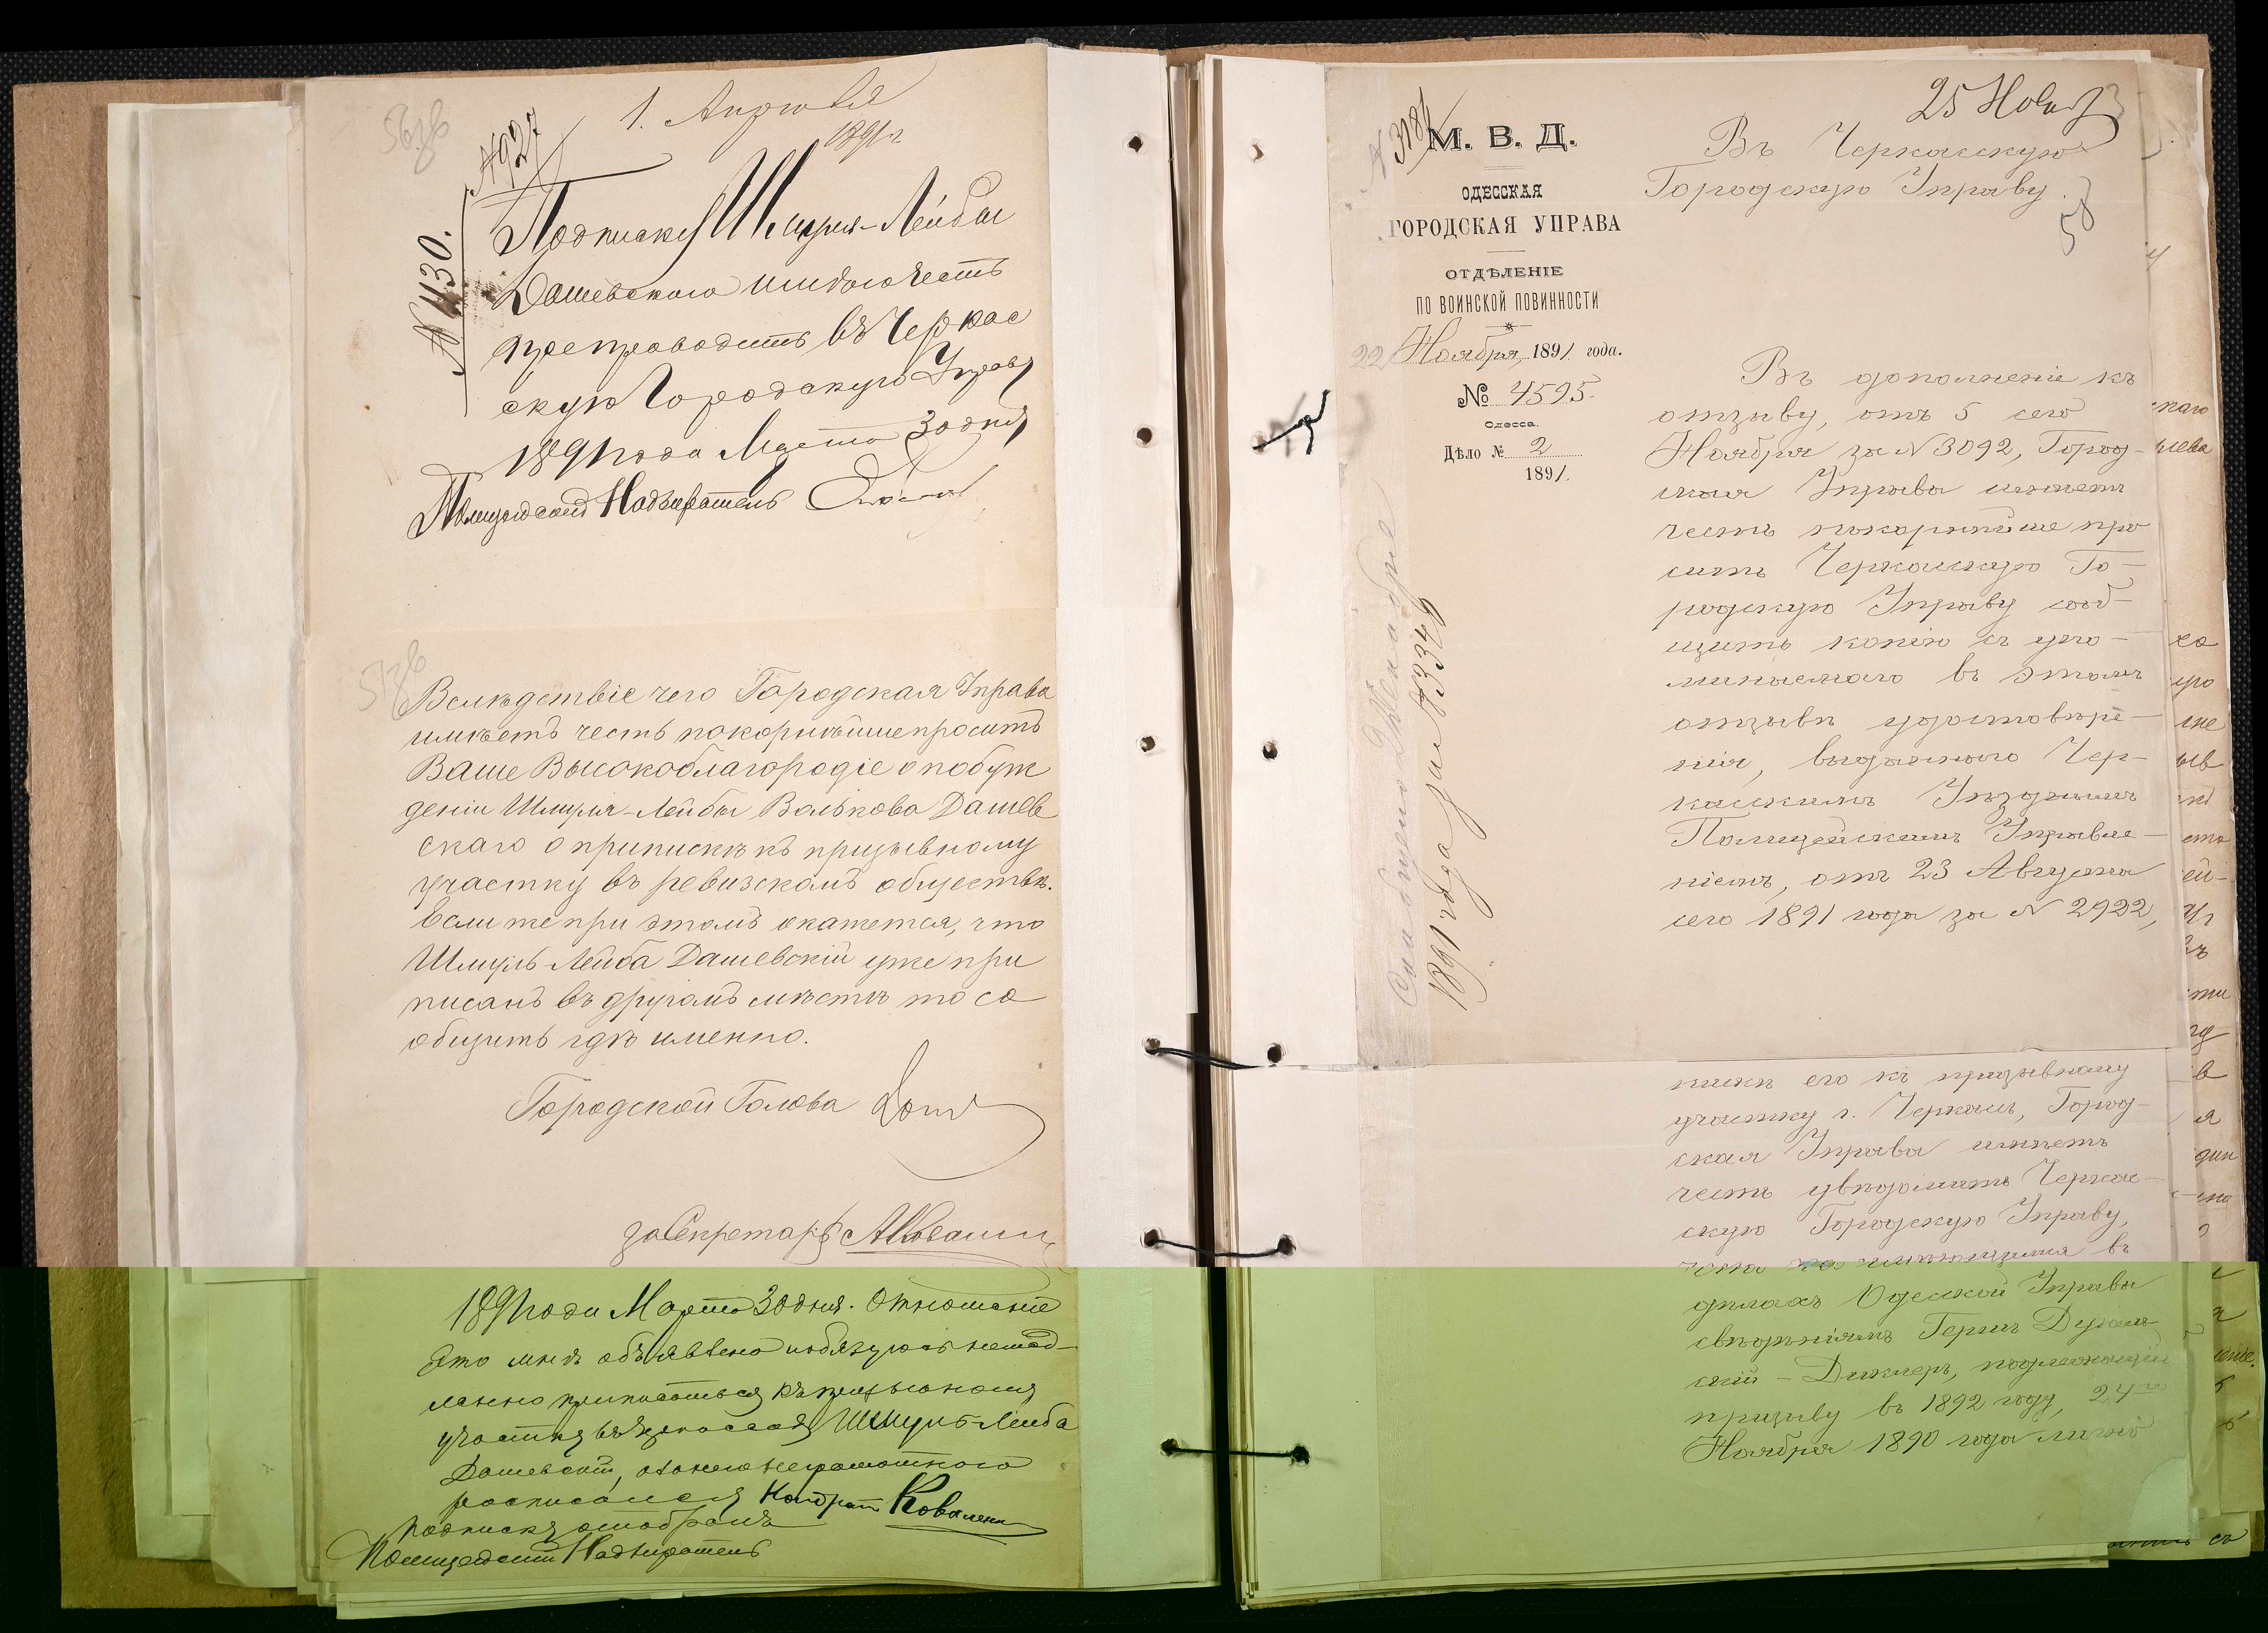 1. Апреля
1891 г.
№ 927
№ 1130.
Подписку Шмуля-Лейбы
Дашевскаго имѣю честь
препроводить въ Черкас
скую Городскую Управу
1891 года Марта 30 дня
Полицейскій Надзиратель
Вслѣдствіе чего Городская Управа
имѣетъ честь покорнѣйше просить
Ваше Высокоблагородіе о побуж
деніи Шмуля-Лейбы Валькова Дашев
скаго о припискѣ къ призывному
участку въ ревизскомъ обществѣ.
Если же при этомъ окажется, что
Шмуль-Лейба Дашевскій уже при
писанъ въ другомъ мѣстѣ то со
общить гдѣ именно.
Городской Голова
за Секретаря
1891 года Марта 30 дня. Отношеніе
это мнѣ объявлено и обязуюсь немед-
ленно приписаться къ призывному
участку въ Черкассахъ Шмуль-Лейба
Дашевскій, а за него неграмотного
росписался Кондрат Коваленко
Подписку отобралъ
Полицейскій Надзиратель
25 Нояб
58
М. В. Д.
ОДЕССКАЯ
ГОРОДСКАЯ УПРАВА
ОТДѢЛЕНІЕ
ПО ВОИНСКОЙ ПОВИННОСТИ
22 Ноября, 1891 года.
№ 4595.
Одесса.
Дѣло № 2
1891.
1891 года за № 3346
Въ Черкасскую
Городскую Управу
Въ дополненіе къ
отзыву, отъ 5 сего
Ноября за № 3092, Город-
ская Управа имѣетъ
честь покорнѣйше про
сить Черкасскую Го-
родскую Управу сооб-
щить копію съ упо-
минаемаго въ этомъ
отзывѣ удостовѣре-
нія, выданнаго Чер-
касскимъ Уѣзднымъ
Полицейскимъ Управле-
ніемъ, отъ 23 Августа
сего 1891 года за № 2922,
пискѣ его къ призывному
участку г. Черкасъ, Город-
ская Управа имѣетъ
честь увѣдомить Черкас-
скую Городскую Управу,
что по имѣющимся въ
дѣлахъ Одесской Управы
свѣдѣніямъ Герш
призыву въ 1892 году, 24го
Ноября 1890 года